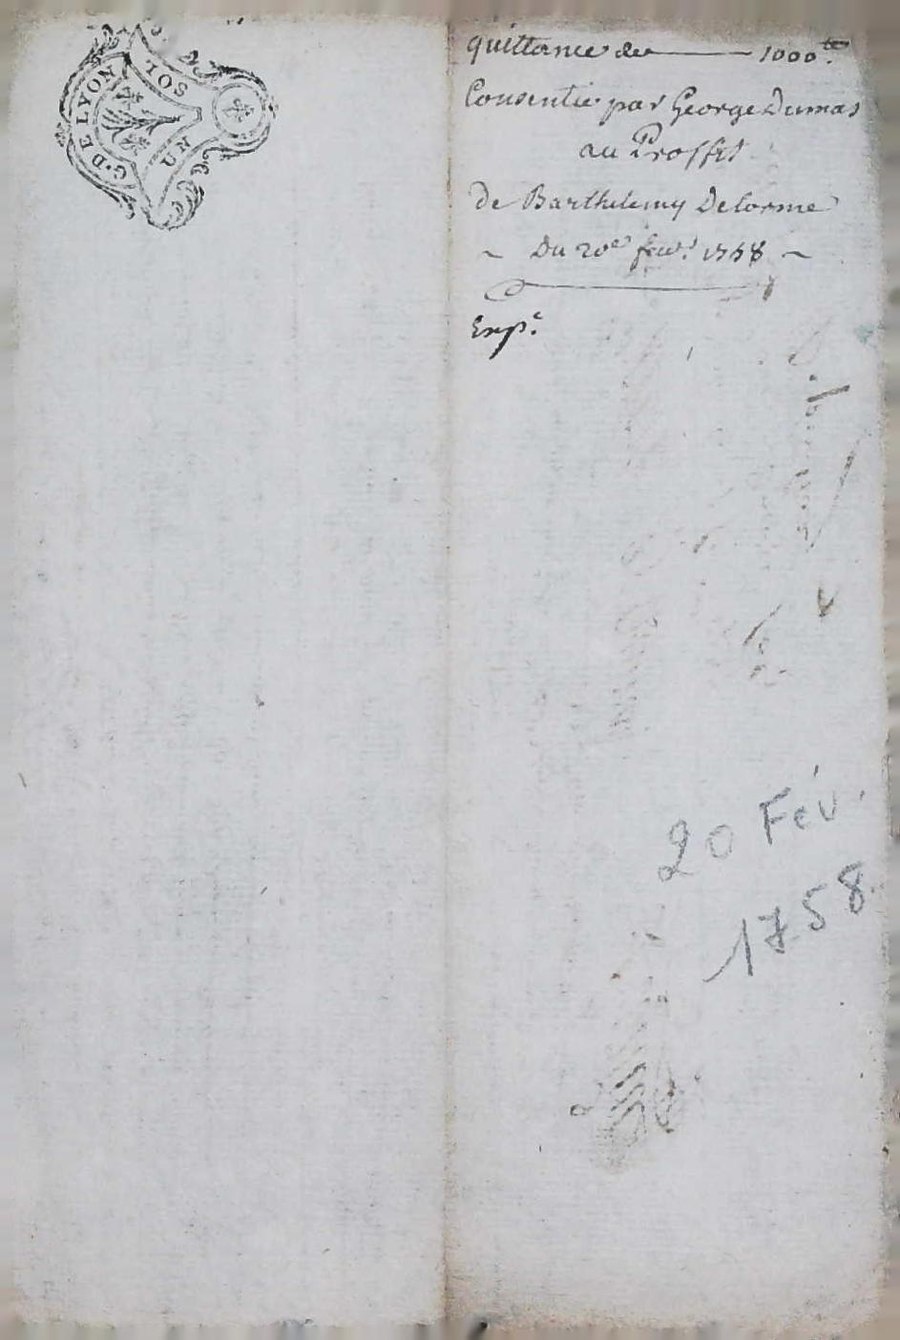 G. DE LYON
UN SOL
quittance de 1000ᵗᵗ.
Consentie par George Dumas
au Proffit
de Barthelemy Delorme
~ Du 20ᵉ fevʳ. 1758 ~
Expᵉ
20 Fév.
1758